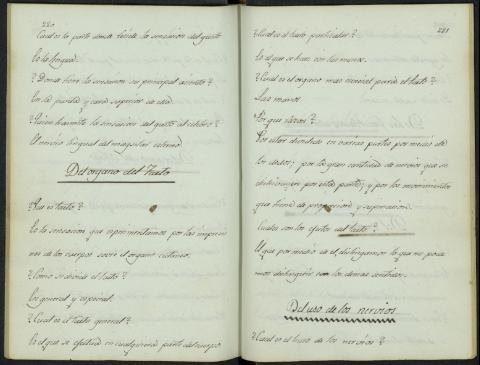 220
Cual es la parte donde reside la sensacion del gusto
Es la lengua.
¿Donde tiene la sensacion su principal asiento?
En la punta y cara superior de ella.
¿Quien trasmite la sensacion del gusto al celebro?
El nervio lingual del maxilar inferior
Del organo del Tacto
¿Que es tacto?
Es la sensacion que esperimentamos por las impresio
nes de los cuerpos sobre el organo cutaneo.
¿Como se divide el tacto?
En general y especial.
¿Cual es el tacto general?
Es el que se efectua en cualquiera parte del cuerpo
221
¿Cual es el tacto particular?
Es el que se hace con las manos.
¿Cual es el organo mas esencial para el tacto?
Las manos
Por que razon?
Por estar dividido en varias partes por medio de
los dedos; por la gran cantidad de nervios que se
distribuyen por esta parte; y por los movimientos
que tiene de pronacion y supinacion.
Cuales son los efectos del tacto?
El que por medio de el distinguimos lo que no pode
mos distinguir con los demas sentidos.
Del uso de los nervios
¿Cual es el huso de los nervios?